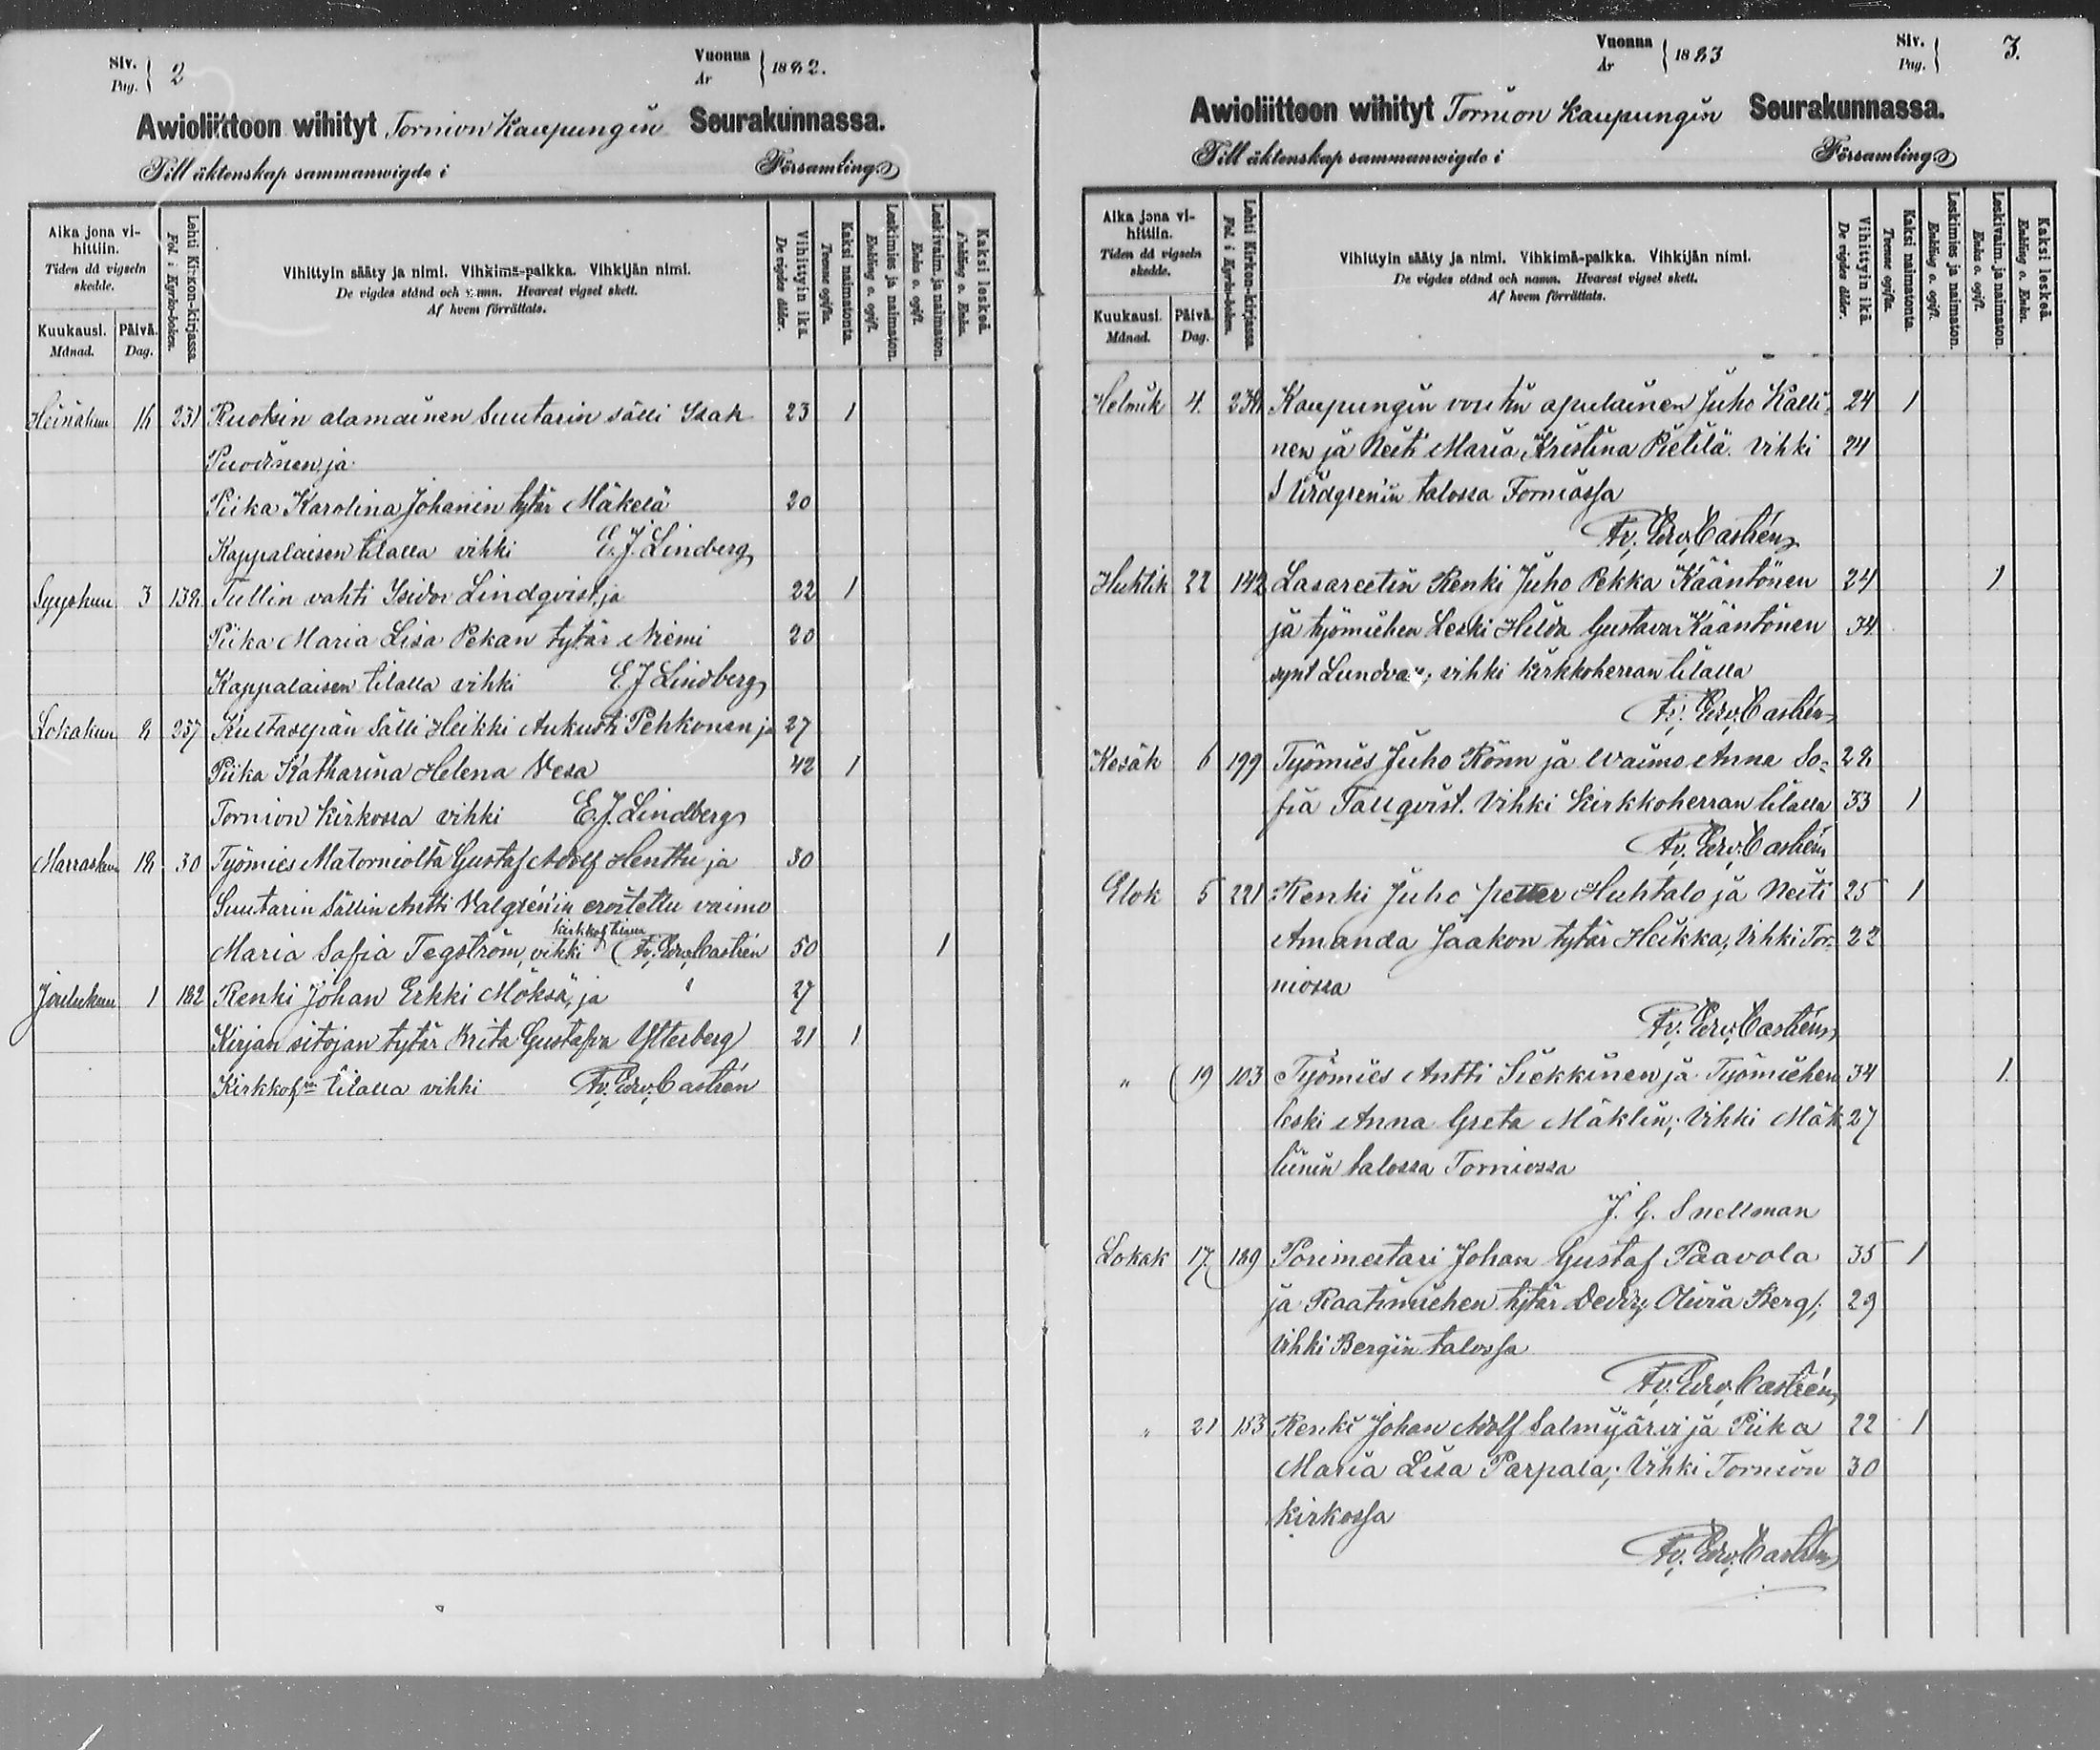 Siv. Pag. 2
Vuonna År 1882.
Awioliittoon wihityt Tornion Kaupungin Seurakunnassa.
Till äktenskap sammanwigde i Församling
Aika jona vihittiin.
Tiden då vigseln skedde.
Kuukausi. Månad.
Päivä. Dag.
Lehti Kirkon-kirjassa.
Fol. i Kyrko-boken.
Vihittyin sääty ja nimi. Vihkimä-paikka. Vihkijän nimi.
De vigdes stånd och namn. Hvarest vigsel skett.
Af hvem förrättats.
Vihittyin ikä.
De vigdes ålder.
Kaksi naimatonta.
Tvenne ogifta.
Leskimies ja naimaton.
Enkling o. ogift.
Leskivaim. ja naimaton.
Enka o. ogift.
Kaksi leskeä.
Enkling o. Enka.
Heinäkuu 16 231 Ruotsin alamainen Suutarin sälli Isak 23 1
Puodinen ja
Piika Karolina Johanin tytär Mäkelä 20
Kappalaisen tilalla vihki E. J. Lindberg
Syyskuu 3 138 Tullin vahti Isidor Lindqvist, ja 22 1
Piika Maria Lisa Pekan tytär Niemi 20
Kappalaisen tilalla vihki E. J Lindberg
Lokakuu 8 257 Kultasepän Sälli Heikki Aukusti Pehkonen ja 27
Piika Katharina Helena Vesa 42 1
Tornion Kirkossa vihki E. J. Lindberg
Marraskuu 18 30 Työmies Matorniolta Gustaf Adolf Henttu ja 30
Suutarin Sällin Antti Valgrén'in eroitettu vaimo
Maria Sofia Tegström, vihki Fr. Edv. Castrén 50 1
Joulukuu 1 182 Renki Johan Erkki Möksä, ja 27
Kirjan sitojan tytär Brita Gustafva Ytterberg 21 1
Kirkkoh:n tilalla vihki Fr. Edv. Castrén
Vuonna År 1883
Siv. Pag. 3.
Awioliittoon wihityt Tornion Kaupungin Seurakunnassa.
Till äktenskap sammanwigde i Församling
Aika jona vihittiin.
Tiden då vigseln skedde.
Kuukausi. Månad.
Päivä. Dag.
Lehti Kirkon-kirjassa.
Fol. i Kyrko-boken.
Vihittyin sääty ja nimi. Vihkimä-paikka. Vihkijän nimi.
De vigdes stånd och namn. Hvarest vigsel skett.
Af hvem förrättats.
Vihittyin ikä.
De vigdes ålder.
Kaksi naimatonta.
Tvenne ogifta.
Leskimies ja naimaton.
Enkling o. ogift.
Leskivaim. ja naimaton.
Enka o. ogift.
Kaksi leskeä.
Enkling o. Enka.
Helmik 4. Kaupungin voutin apulainen Juho Kalli- 24 1
nen ja Neiti Maria Kristina Pietilä. Vihki 24
talossa Torniossa
Fr. Edv. Castrén
Huhtik 22 142 Lasareetin Renki Juho Pekka Kääntönen 24 1
ja työmiehen Leski Hilda Gustava Kääntönen 34
synt vihki kirkkoherran tilalla
Fr. Edv. Castrén
Kesäk 6 199 Työmies Juho Rönn ja waimo Anna So- 28
fia Tallqvist. Vihki Kirkkoherran tilalla 33 1
Fr. Edv. Castrén
Elok 5 221 Renki Juho Petter Huhtalo ja Neiti 25 1
Amanda Jaakon tytär Heikka, Vihki Tor- 22
niossa
Fr. Edv. Castrén
" 19 103 Työmies Antti Siekkinen ja Työmiehen 34 1
leski Anna Greta Mäklin; Vihki Mäk 27
linin talossa Torniossa
J. G. Snellman
Lokak 17. 189 Porimestari Johan Gustaf Paavola 35 1
ja Raatimiehen tytär Olivia Berg; 29
Vihki Bergin talossa
Fr. Edv. Castrén
" 21 153 Renki Johan Adolf Salmijärvi ja Piika 22 1
Maria Lisa Parpala; Vihki Tornion 30
kirkossa
Fr. Edv. Castrén